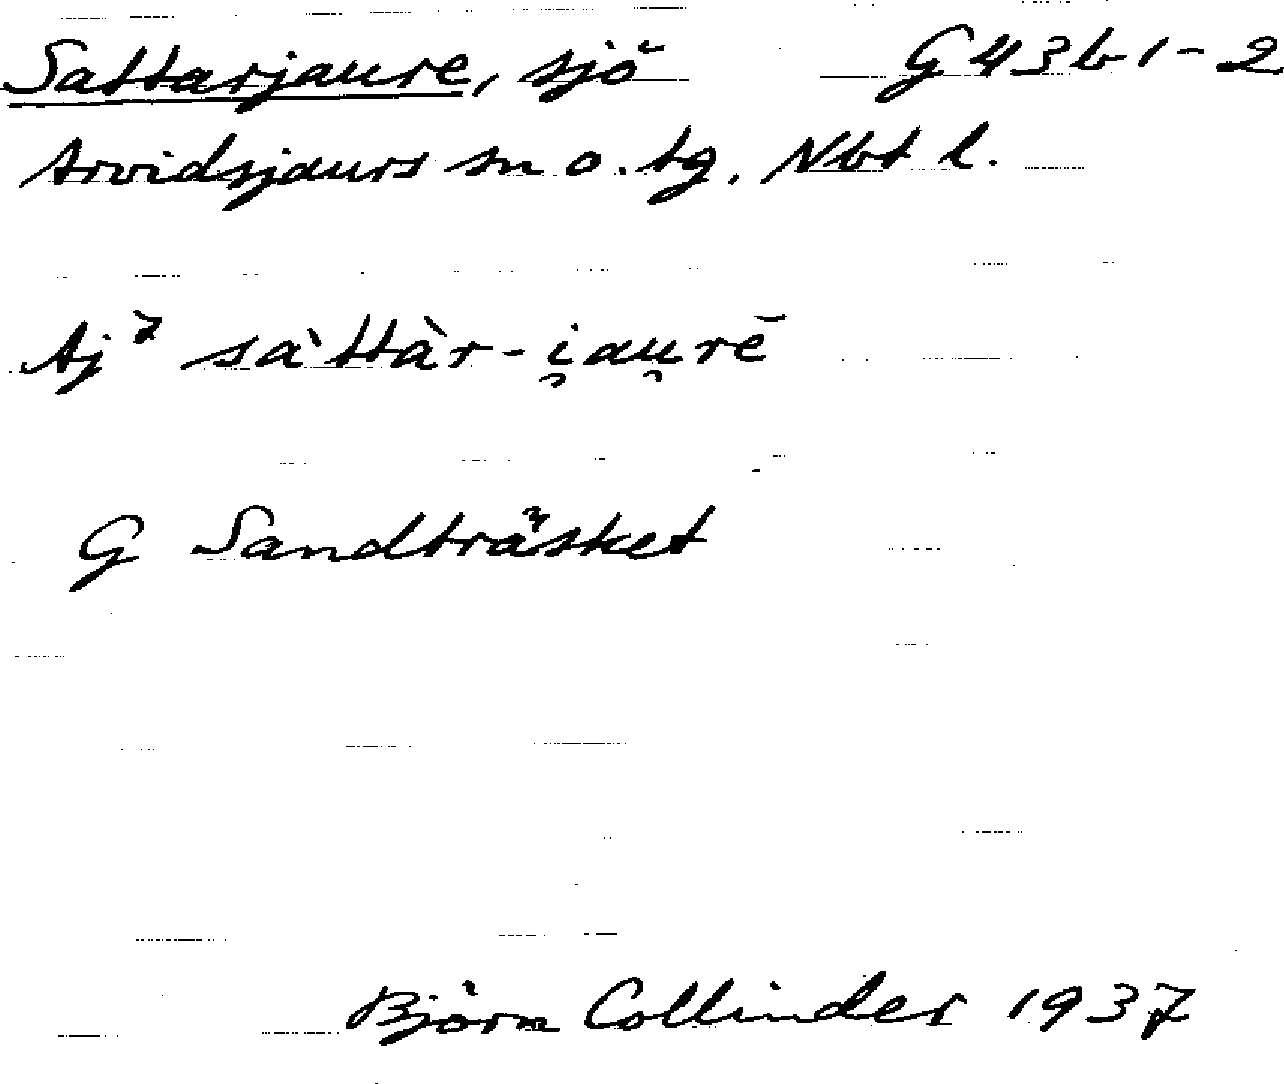 Sattarjaure, sjö G43b1-2
Arvidsjaurs sn o. tg. Nbt l.
Aj⁷ sàttàr-i̯au̯rē
G Sandträsket
Björn Collinder 1937